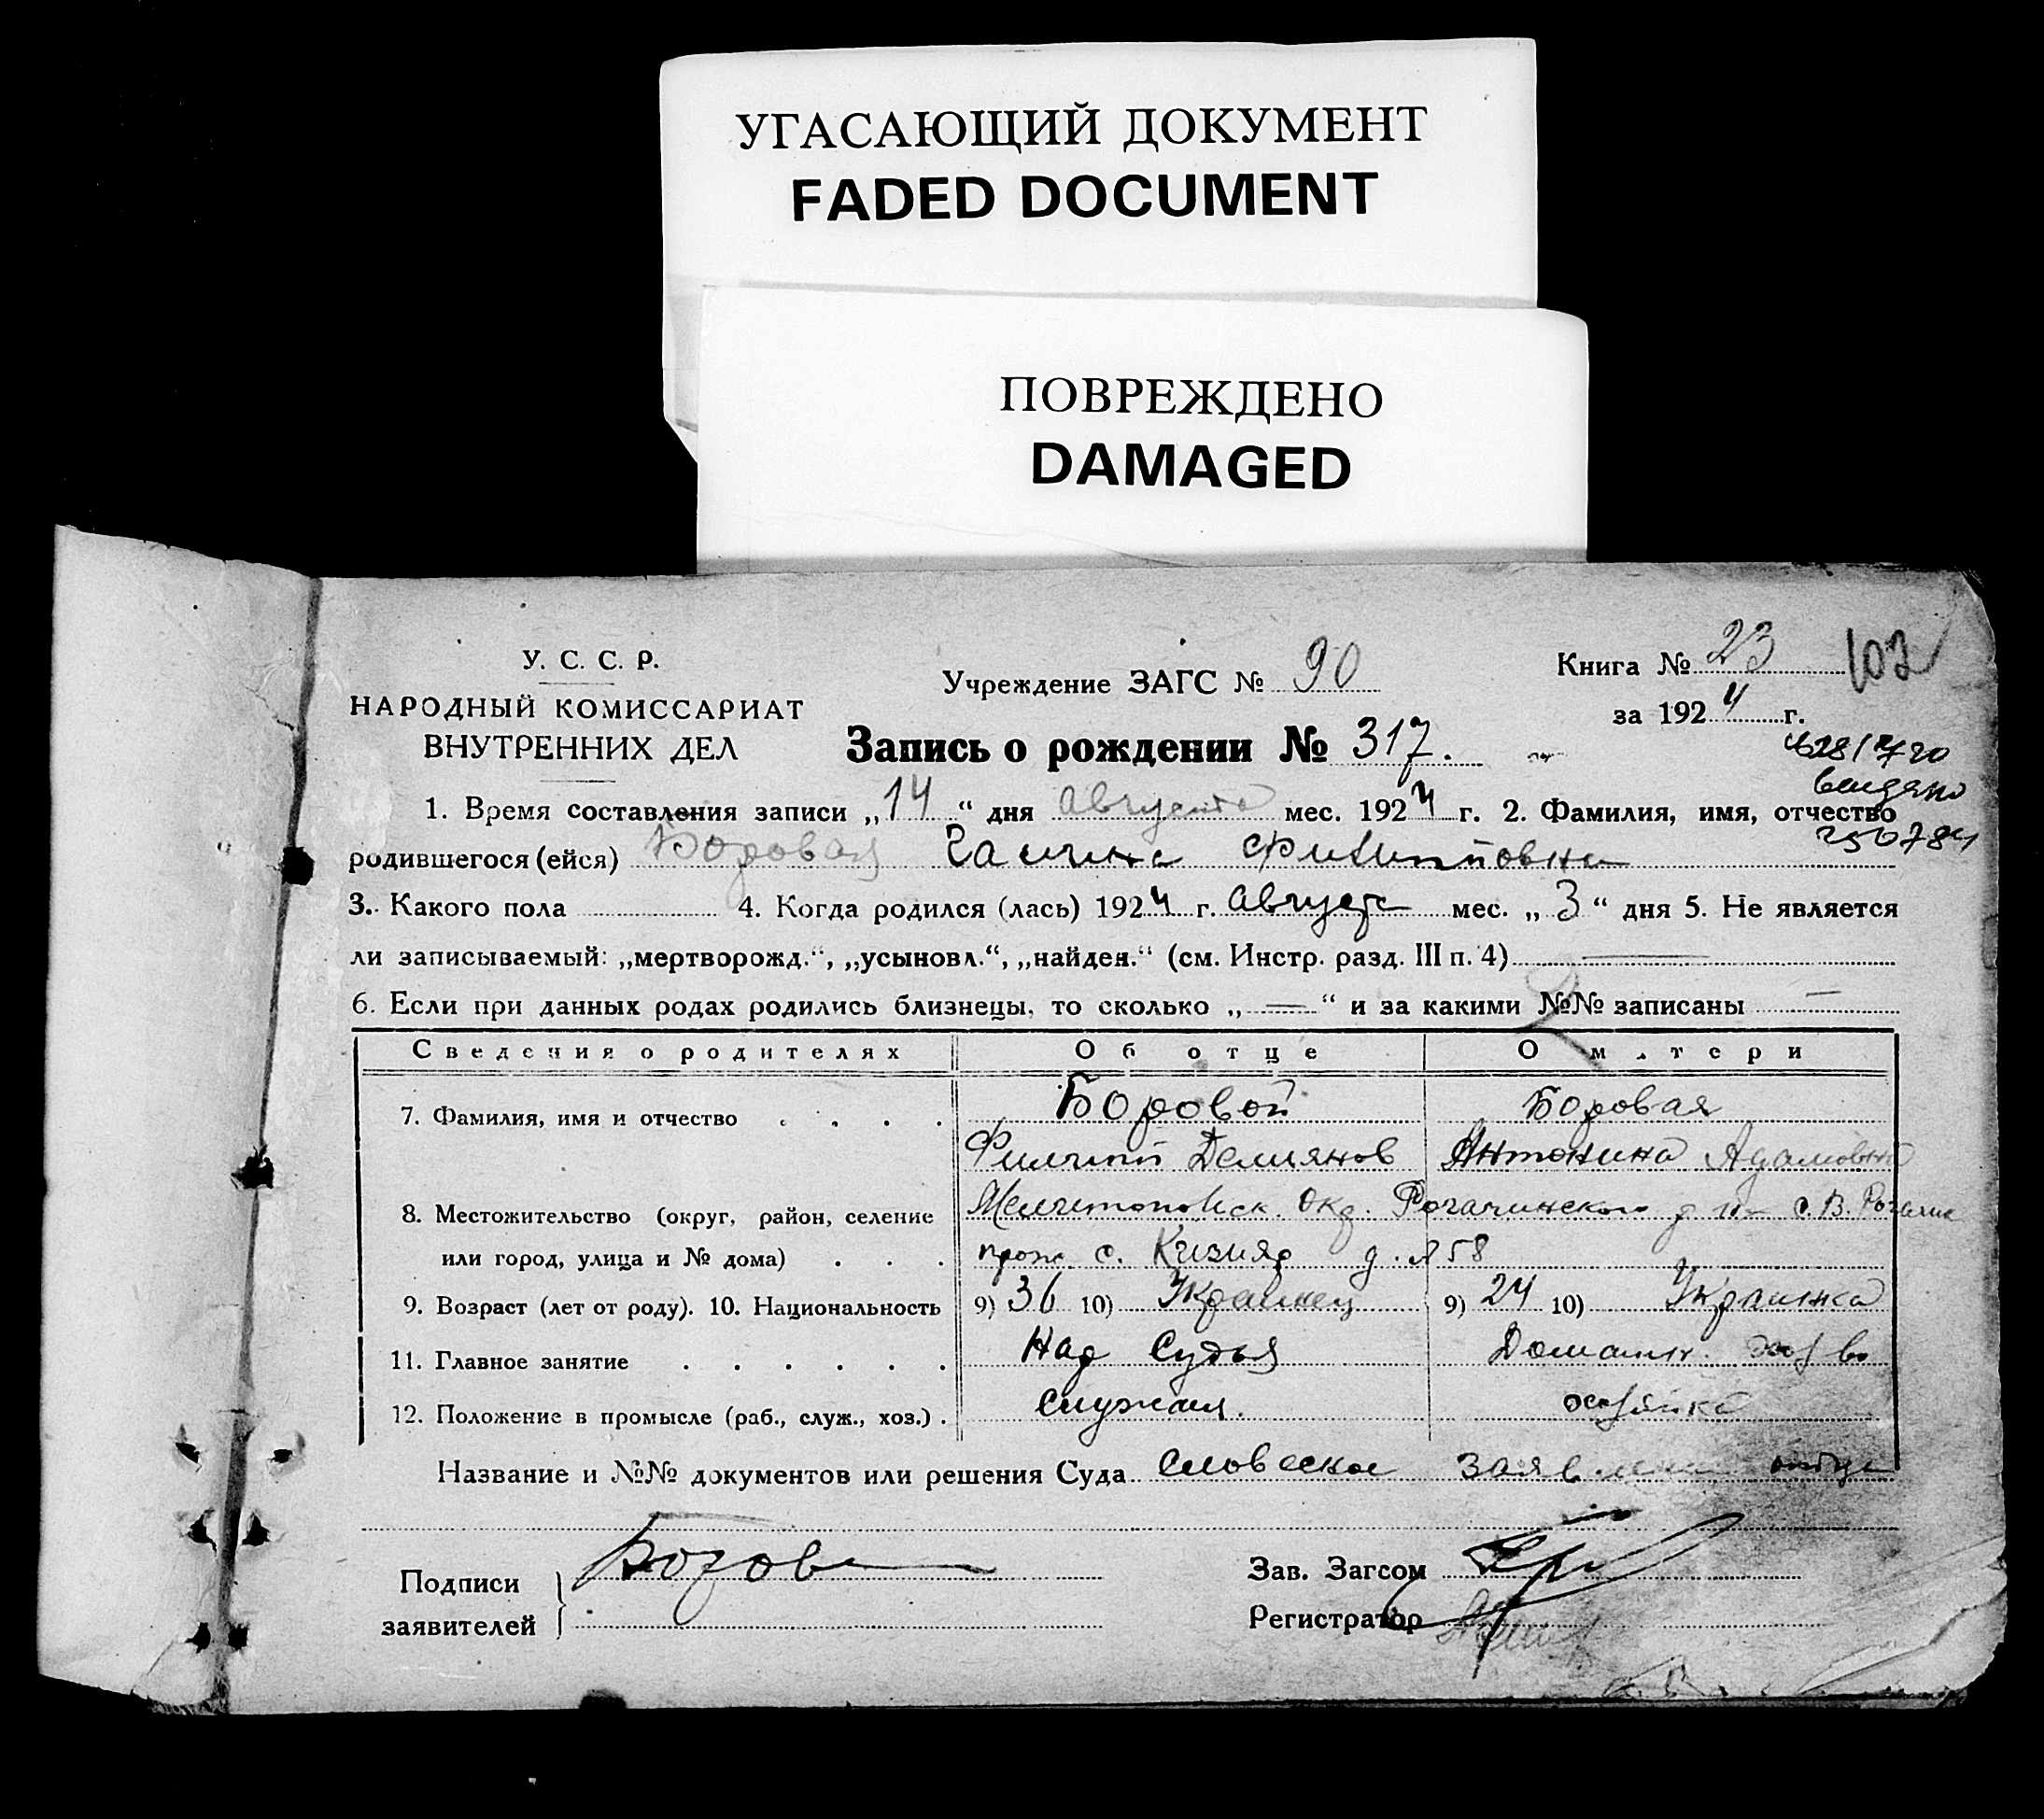 УГАСАЮЩИЙ ДОКУМЕНТ
FADED DOCUMENT
ПОВРЕЖДЕНО
DAMAGED
У. С. С. Р.
НАРОДНЫЙ КОМИССАРИАТ
ВНУТРЕННИХ ДЕЛ
Учреждение ЗАГС № 90
Книга № 23 102
за 1924 г.
Запись о рождении № 317.
выдано
1. Время составления записи „14“ дня августа мес. 1924 г. 2. Фамилия, имя, отчество
родившегося (ейся) Боровая Галина Филипповна
3. Какого пола 4. Когда родился (лась) 1924 г. август мес. „3“ дня 5. Не является
ли записываемый: „мертворожд.“, „усыновл.“, „найден.“ (см. Инстр. разд. III п. 4)
6. Если при данных родах родились близнецы, то сколько „—“ и за какими №№ записаны —
Сведения о родителях Об отце О матери
7. Фамилия, имя и отчество Боровой Боровая
Филипп Демьянов Антонина Адамовна
8. Местожительство (округ, район, селение Мелитопольск. Окр. Рогачинского р-н с. В. Рогачик
или город, улица и № дома) прож. с. Кизияр д. № 58
9. Возраст (лет от роду). 10. Национальность 9) 36 10) Украинец 9) 24 10) Украинка
11. Главное занятие Нар Судья Домашн. хоз во
12. Положение в промысле (раб., служ., хоз.) Служащ. хозяйка
Название и №№ документов или решения Суда словесное заявление отца
Подписи
заявителей
Зав. Загсом
Регистратор